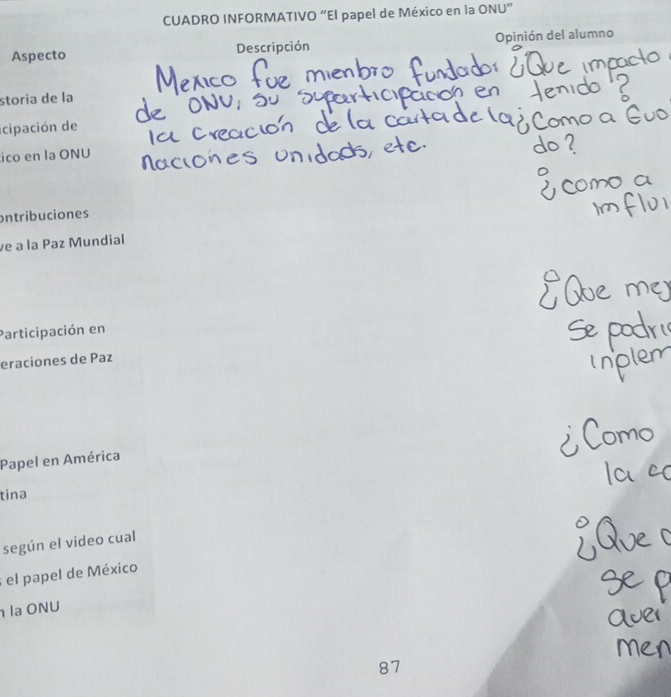 CUADRO INFORMATIVO "El papel de México en la ONU"
Aspecto Descripción Opinión del alumno
storia de la
cipación de
ico en la ONU
Mexico fue mienbro fundador
de ONU, su suparticipacion en
la creación de la carta de la
naciones unidads, etc.
¿Que impacto
tenido?
¿Como a
do?
¿como a
influi
ontribuciones
ve a la Paz Mundial
¿Que me
se podri
inplem
Participación en
eraciones de Paz
¿Como
la
Papel en América
tina
¿Que
se p
aver
men
según el video cual
s el papel de México
n la ONU
87